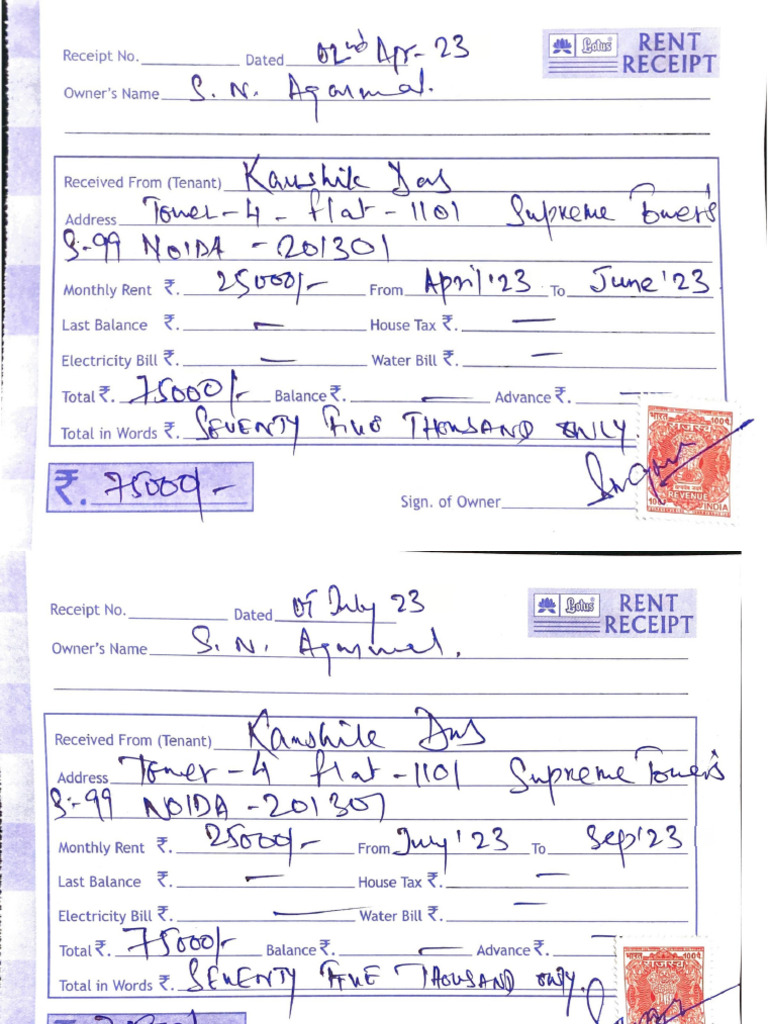 Receipt No. Dated 02nd Apr-23
Lotus RENT RECEIPT
Owner's Name S. N. Agarwal.
Received From (Tenant) Kaushik Das
Address Tower-4 - flat-1101 Supreme Towers
S-99 NOIDA - 201301
Monthly Rent ₹. 25000/- From April'23 To June'23
Last Balance ₹. — House Tax ₹. —
Electricity Bill ₹. — Water Bill ₹. —
Total ₹. 75000/- Balance ₹. — Advance ₹. —
Total in Words ₹. SEVENTY FIVE THOUSAND ONLY.
भारत 100p
REVENUE
INDIA
₹. 75000/- Sign. of Owner
Receipt No. Dated July 23
Lotus RENT RECEIPT
Owner's Name S. N. Agarwal.
Received From (Tenant) Kaushik Das
Address Tower-4 flat-1101 Supreme Towers
S-99 NOIDA - 201301
Monthly Rent ₹. 25000/- From July'23 To Sep'23
Last Balance ₹. — House Tax ₹. —
Electricity Bill ₹. — Water Bill ₹. —
Total ₹. 75000/- Balance ₹. — Advance ₹. —
Total in Words ₹. SEVENTY FIVE THOUSAND ONLY.
भारत 100p